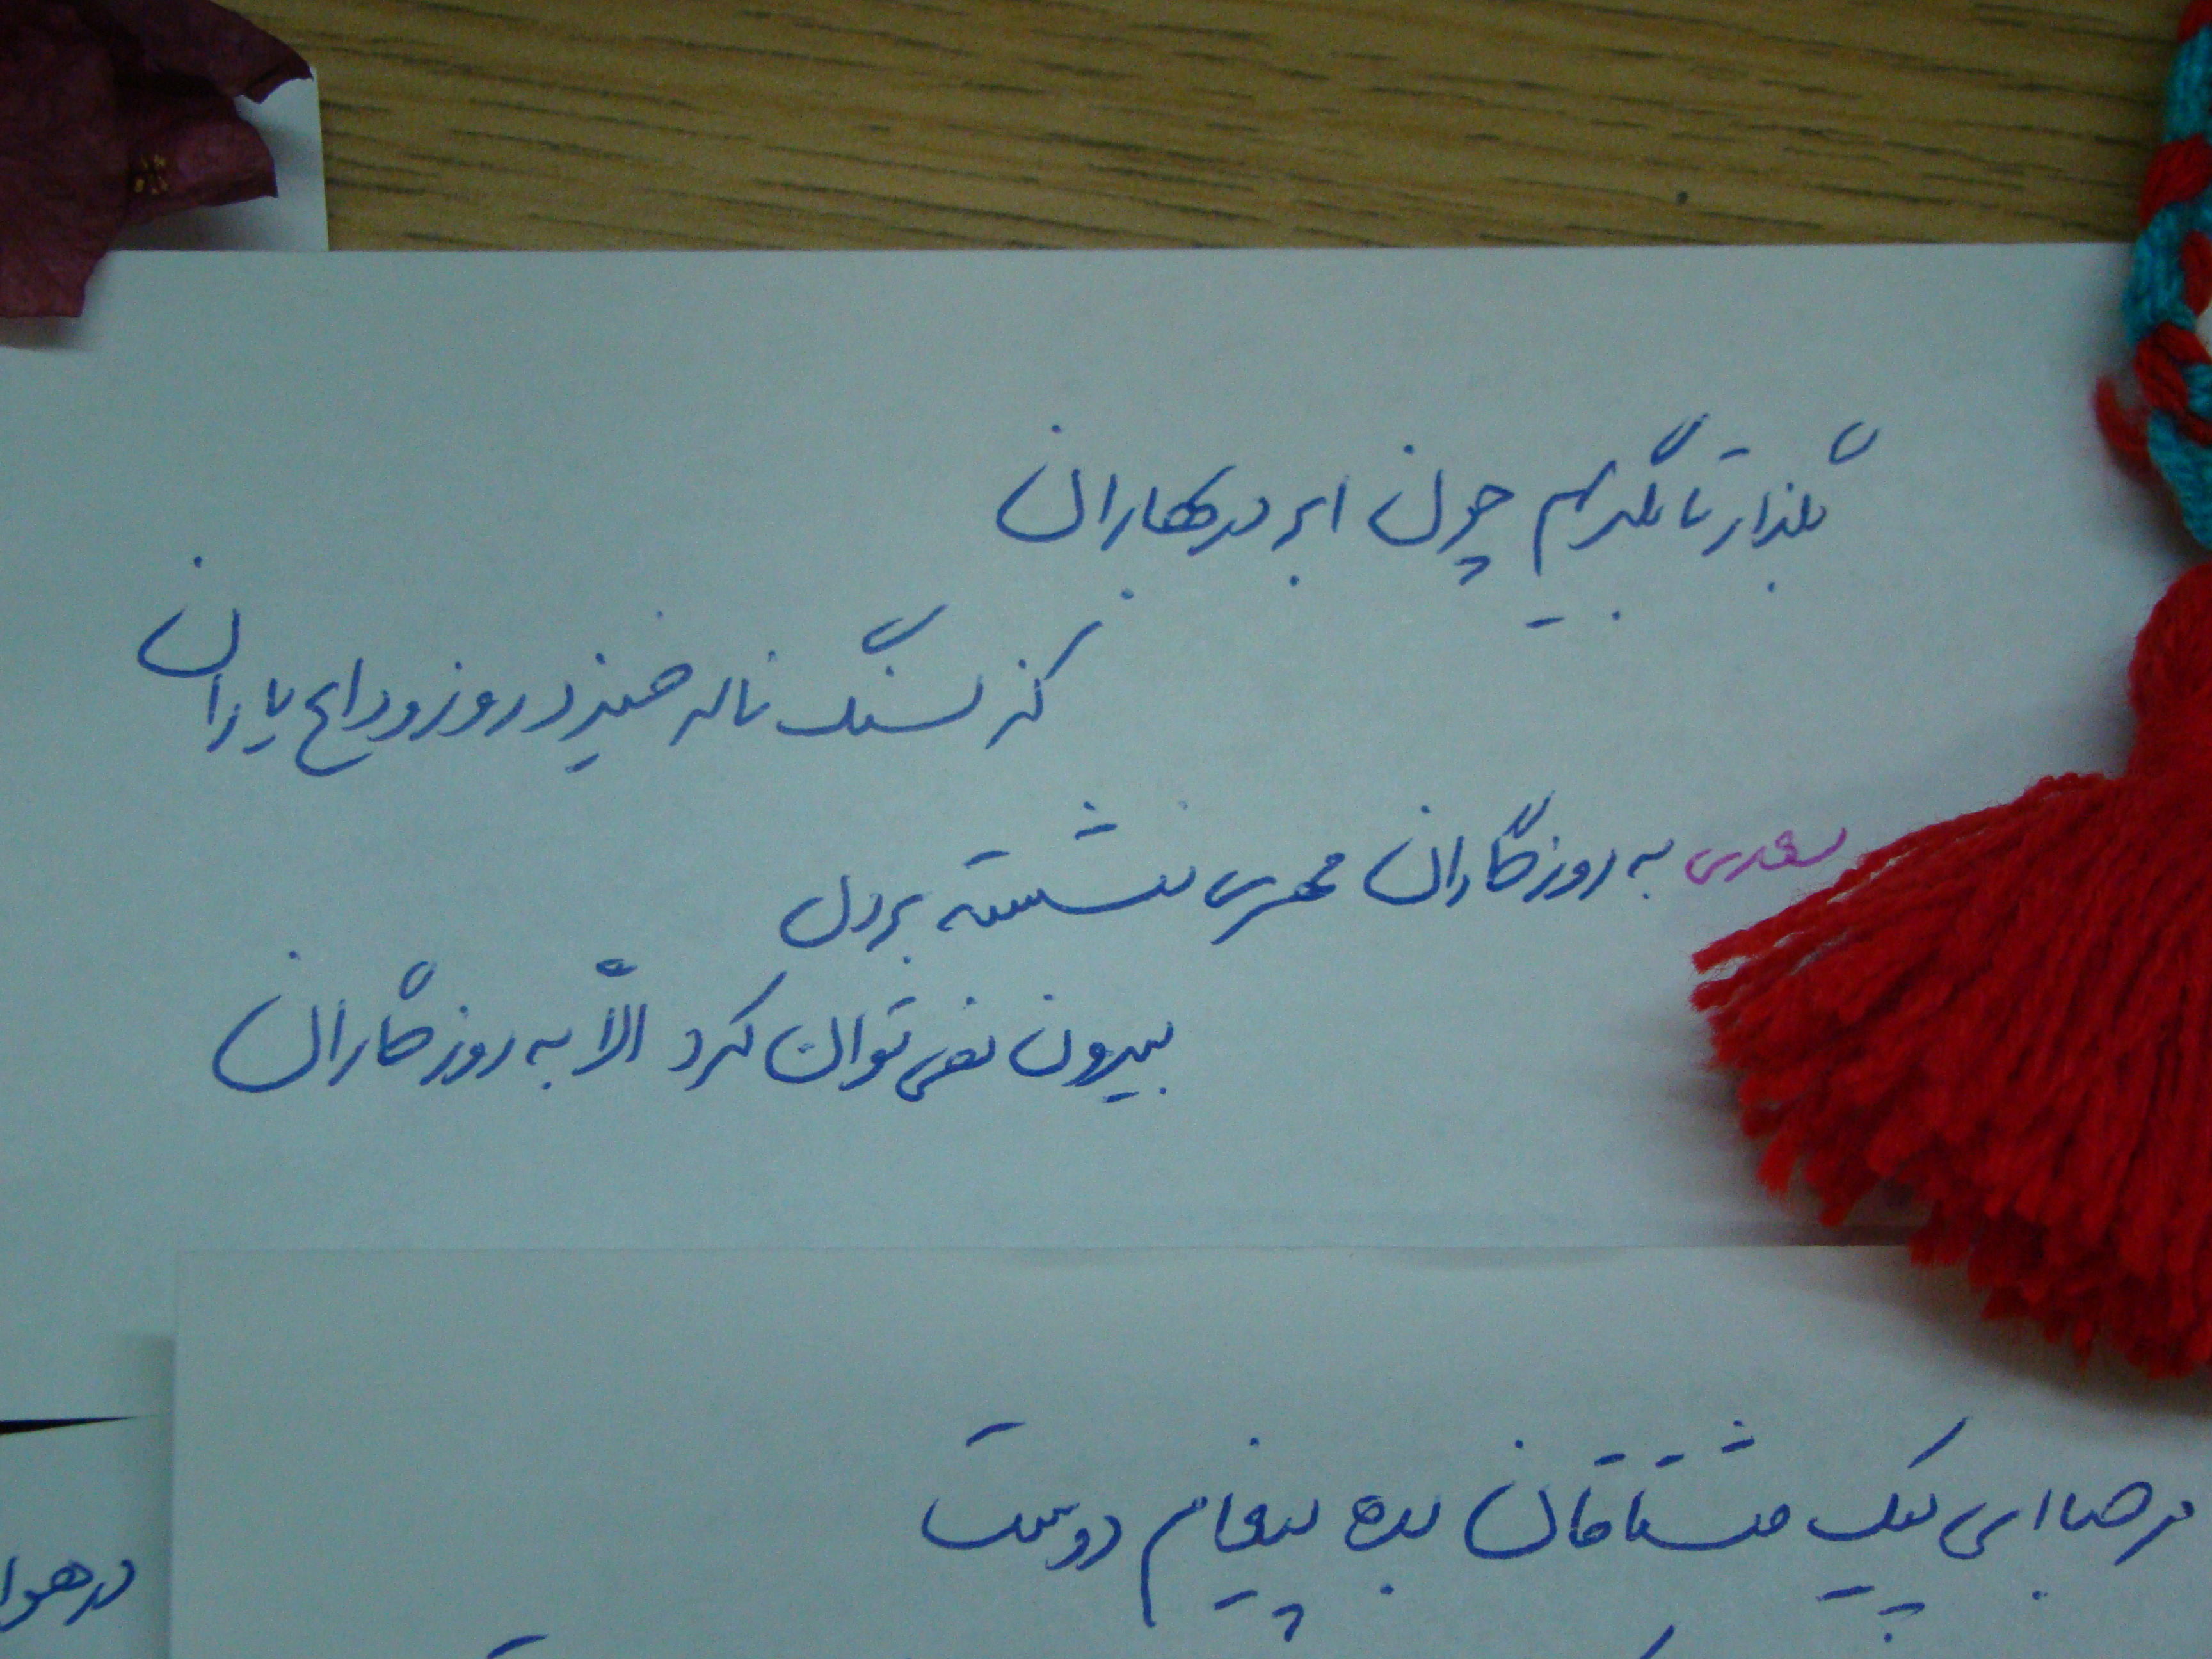 بگذار تا بگریم چون ابر در بهاران
کز سنگ ناله خیزد روز وداع یاران
سعدی به روزگاران مهری نشسته بر دل
بیرون نمی توان کرد الاّ به روزگاران
مرحبا ای پیک مشتاقان بده پیغام دوست
در هوا